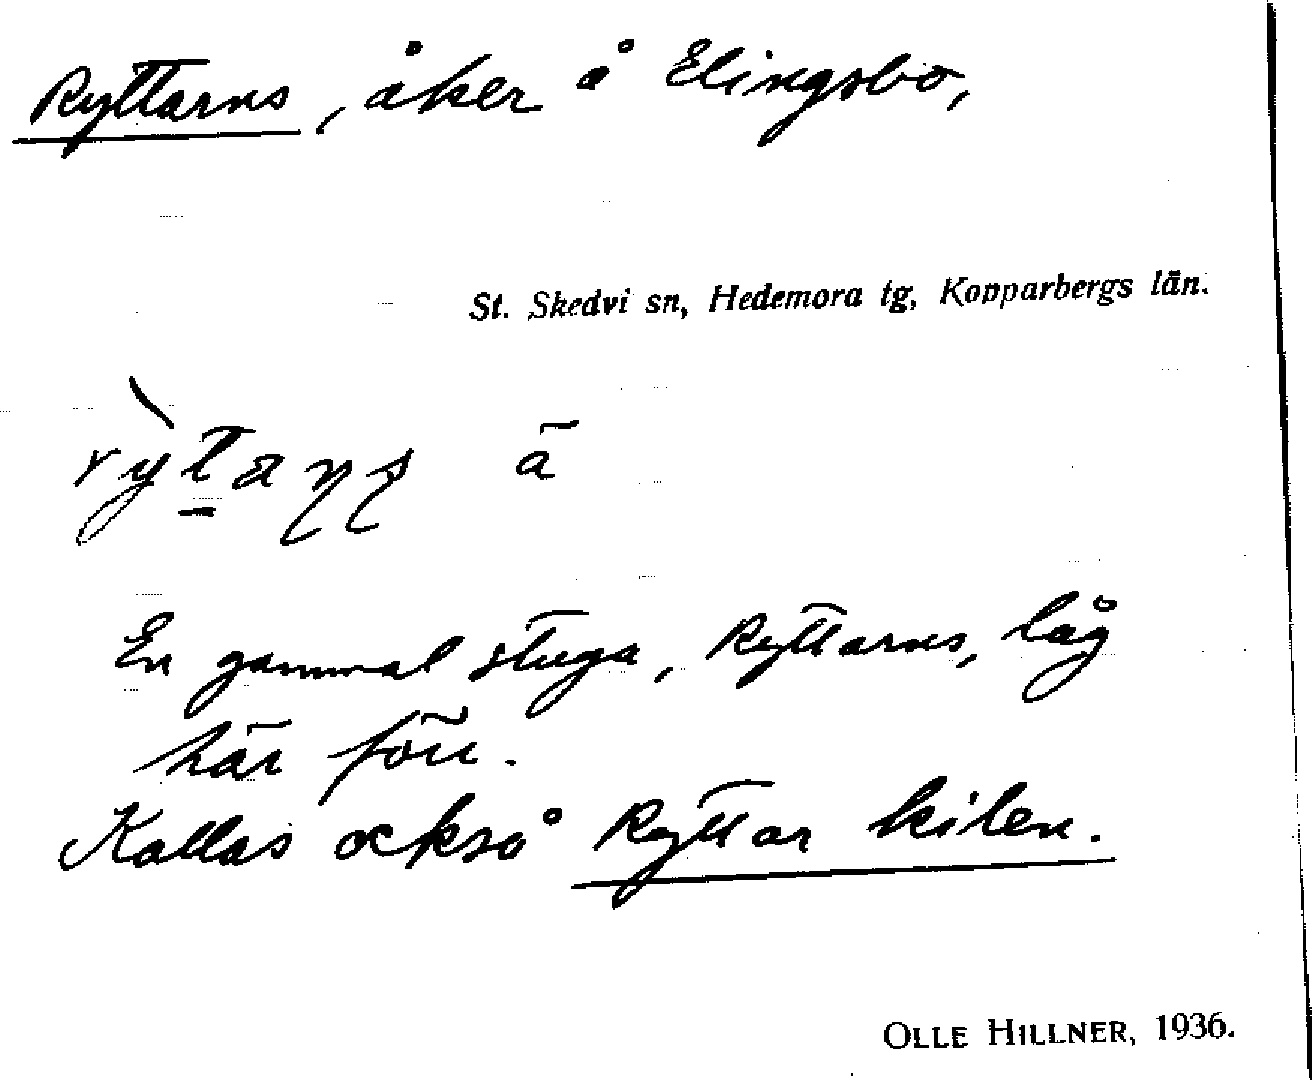 Ryttarns, åker å Elingsbo,
St. Skedvi sn, Hedemora tg, Kopparbergs län.
En gammal stuga, Ryttarns, låg
här förr.
Kallas också Ryttar kilen.
OLLE HILLNER, 1936.